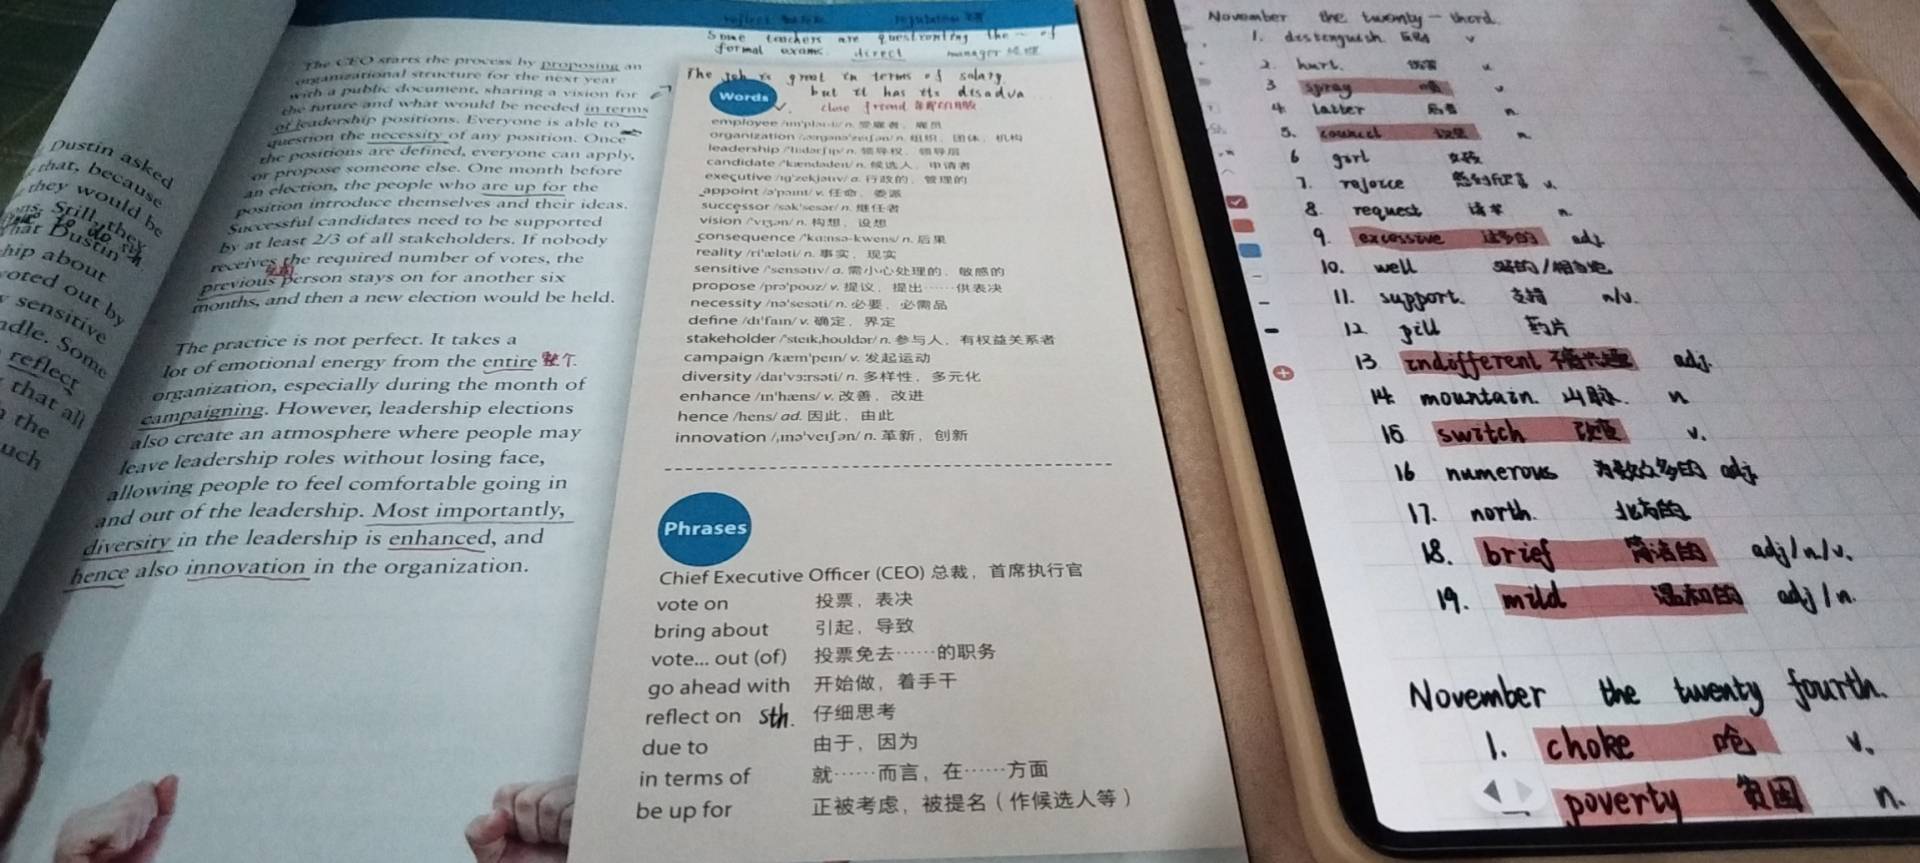 Dustin asked
that, because
they would be
Still, they
hat Dustin
hip about
voted out by
sensitive
ndle. Some
reflect
that all
the
uch
The CEO starts the process by proposing an
organizational structure for the next year
with a public document, sharing a vision for
the future and what would be needed in terms
of leadership positions. Everyone is able to
question the necessity of any position. Once
the positions are defined, everyone can apply,
or propose someone else. One month before
an election, the people who are up for the
position introduce themselves and their ideas.
Successful candidates need to be supported
by at least 2/3 of all stakeholders. If nobody
receives the required number of votes, the
previous person stays on for another six
months, and then a new election would be held.
The practice is not perfect. It takes a
lot of emotional energy from the entire 整个.
organization, especially during the month of
campaigning. However, leadership elections
also create an atmosphere where people may
leave leadership roles without losing face,
allowing people to feel comfortable going in
and out of the leadership. Most importantly,
diversity in the leadership is enhanced, and
hence also innovation in the organization.
reflect
Some teachers are questioning the ~ of
formal exams. direct manager 经理
The job is great in terms of salary.
but it has its disadva
Words
close friend
employee /ɪm'plɔɪ-iː/ n. 受雇者，雇员
organization /ˌɔːrgənə'zeɪʃən/ n. 组织，团体，机构
leadership /'liːdərʃɪp/ n. 领导权，领导层
candidate /'kændədeɪt/ n. 候选人，申请者
executive /ɪg'zekjətɪv/ a. 行政的，管理的
appoint /ə'pɔɪnt/ v. 任命，委派
successor /sək'sesər/ n. 继任者
vision /'vɪʒən/ n. 构想，设想
consequence /'kɑːnsə-kwens/ n. 后果
reality /ri'æləti/ n. 事实，现实
sensitive /'sensətɪv/ a. 需小心处理的，敏感的
propose /prə'pouz/ v. 提议，提出……供表决
necessity /nə'sesəti/ n. 必要，必需品
define /dɪ'faɪn/ v. 确定，界定
stakeholder /'steɪkˌhouldər/ n. 参与人，有权益关系者
campaign /kæm'peɪn/ v. 发起运动
diversity /daɪ'vɜːrsəti/ n. 多样性，多元化
enhance /ɪn'hæns/ v. 改善，改进
hence /hens/ ad. 因此，由此
innovation /ˌɪnə'veɪʃən/ n. 革新，创新
Phrases
Chief Executive Officer (CEO) 总裁，首席执行官
vote on 投票，表决
bring about 引起，导致
vote... out (of) 投票免去……的职务
go ahead with 开始做，着手干
reflect on sth. 仔细思考
due to 由于，因为
in terms of 就……而言，在……方面
be up for 正被考虑，被提名（作候选人等）
November the twenty-third.
1. distinguish 区别 v
2. hurt. 伤害 v
3 spray 喷 v
4 latter 后者 n.
5. council 议会 n.
6 girl 女孩
7. rejoice 感到欣喜 v.
8. request 请求 n.
9. excessive 过多的 adj.
10. well 好的/相当地
11. support. 支持 n/v.
12 pill 药片
13 indifferent 不感兴趣 adj.
14 mountain. 山脉. n
15 switch 改变 v.
16 numerous 为数众多的 adj.
17. north. 北方的
18. brief 简洁的 adj/n/v.
19. mild 温和的 adj/n.
November the twenty fourth.
1. choke 呛 v.
poverty 贫困 n.